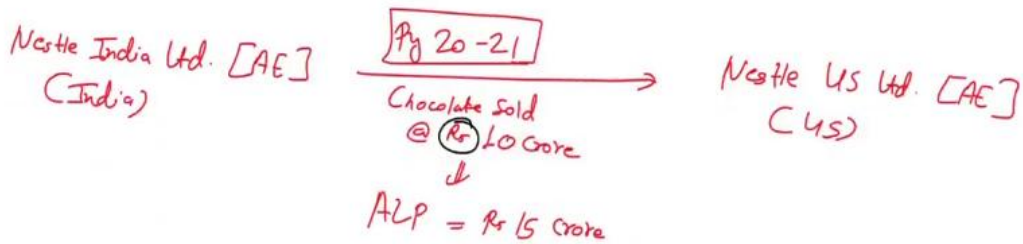 Nestle India Ltd. [AE]
(India)
Py 20-21
Chocolate Sold
@ Rs 10 Crore
ALP = Rs 15 Crore
Nestle US Ltd. [AE]
(US)